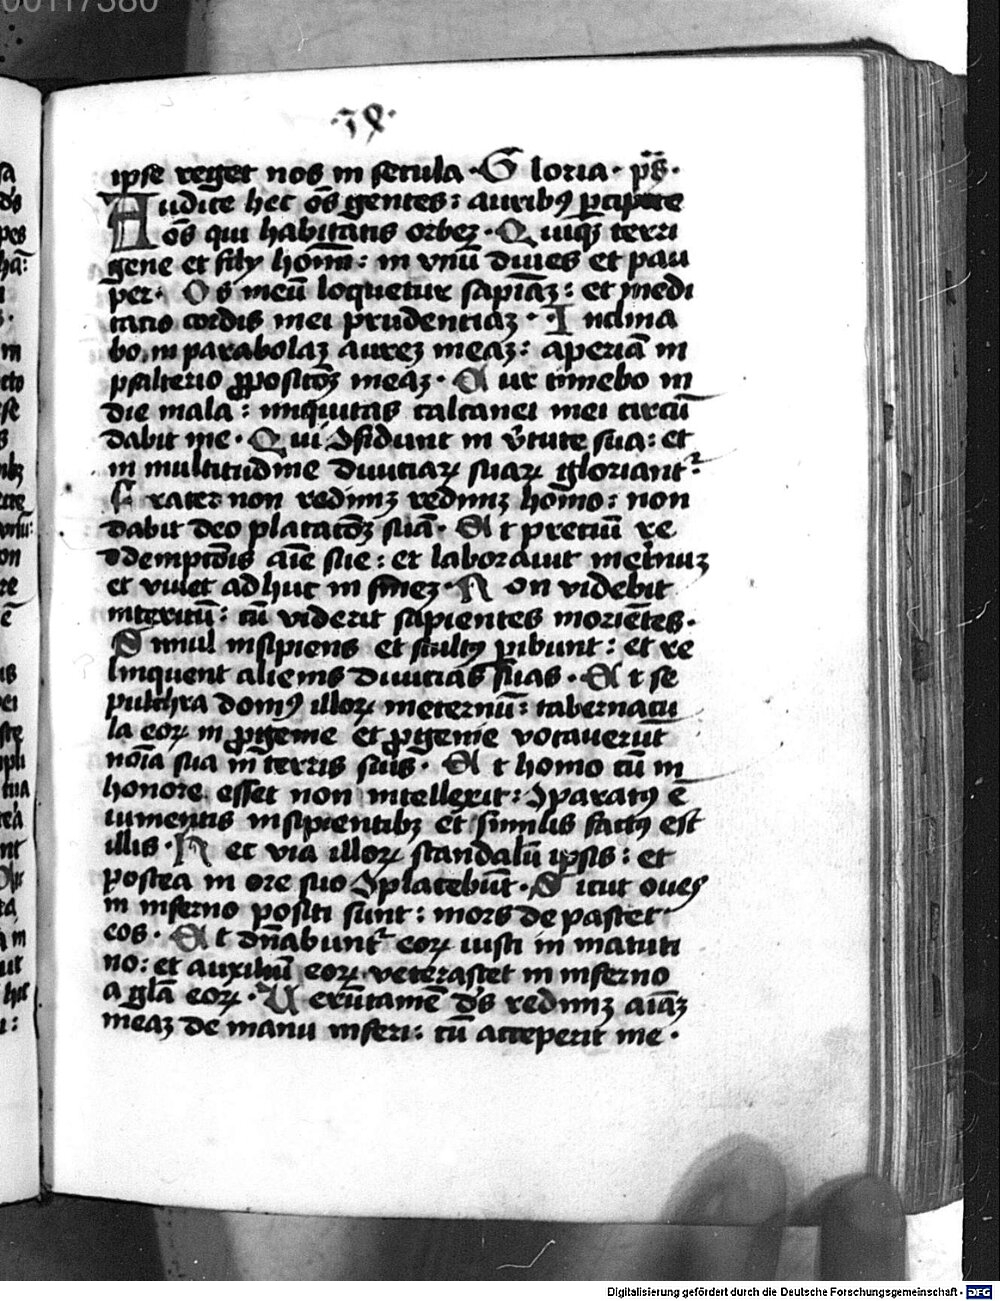 00117380
ipse reget nos in secula. Gloria. p̄s.
Audite hec o̅s gentes: auribꝰ ꝑcipite
o̅s qui habitatis orbeȝ. Quiqȝ terri
gene et filij homi̅: in vnu̅ diues et pau
per. Os meu̅ loquetur sapia̅ȝ: et medi
tatio cordis mei prudentiaȝ. Inclina
bo in parabolaȝ aureȝ meaȝ: aperia̅ in
psalterio ꝓpositio̅ȝ meaȝ. Cur timebo in
die mala: iniquitas calcanei mei circu̅
dabit me. Qui ꝯfidunt in v̓tute sua: et
in multitudine diuitiaꝝ suaꝝ gloriant᷑
Frater non redimiȝ redimȝ homo: non
dabit deo placatio̅ȝ sua̅. Et preciu̅ re
demptio̅is ai̅e sue: et laborauit in et̓nuȝ
et viuet adhuc in fineȝ. Non videbit
interitu̅: cu̅ viderit sapientes morie̅tes.
Simul insipiens et stultꝰ ꝑibunt: et re
linquent alienis diuitias suas. Et se
pulchra domꝰ illoꝝ in eternu̅: tabernacu
la eoꝝ in ꝓgenie et ꝓgenie vocaueru̅t
noi̅a sua in terris suis. Et homo cu̅ in
honore esset non intellexit: ꝯparatꝰ e̅
iumentis insipientibȝ et similis factꝰ est
illis. Hec via illoꝝ scandalu̅ ipsis: et
postea in ore suo ꝯplacebu̅t. Sicut oues
in inferno positi sunt: mors depascet᷑
eos. Et dn̅abunt᷑ eoꝝ iusti in matuti
no: et auxiliu̅ eoꝝ veterascet in inferno
a gl̅a eoꝝ. Veru̅tame̅ d̅s redimȝ aia̅ȝ
meaȝ de manu inferi: cu̅ acceperit me.
Digitalisierung gefördert durch die Deutsche Forschungsgemeinschaft - DFG